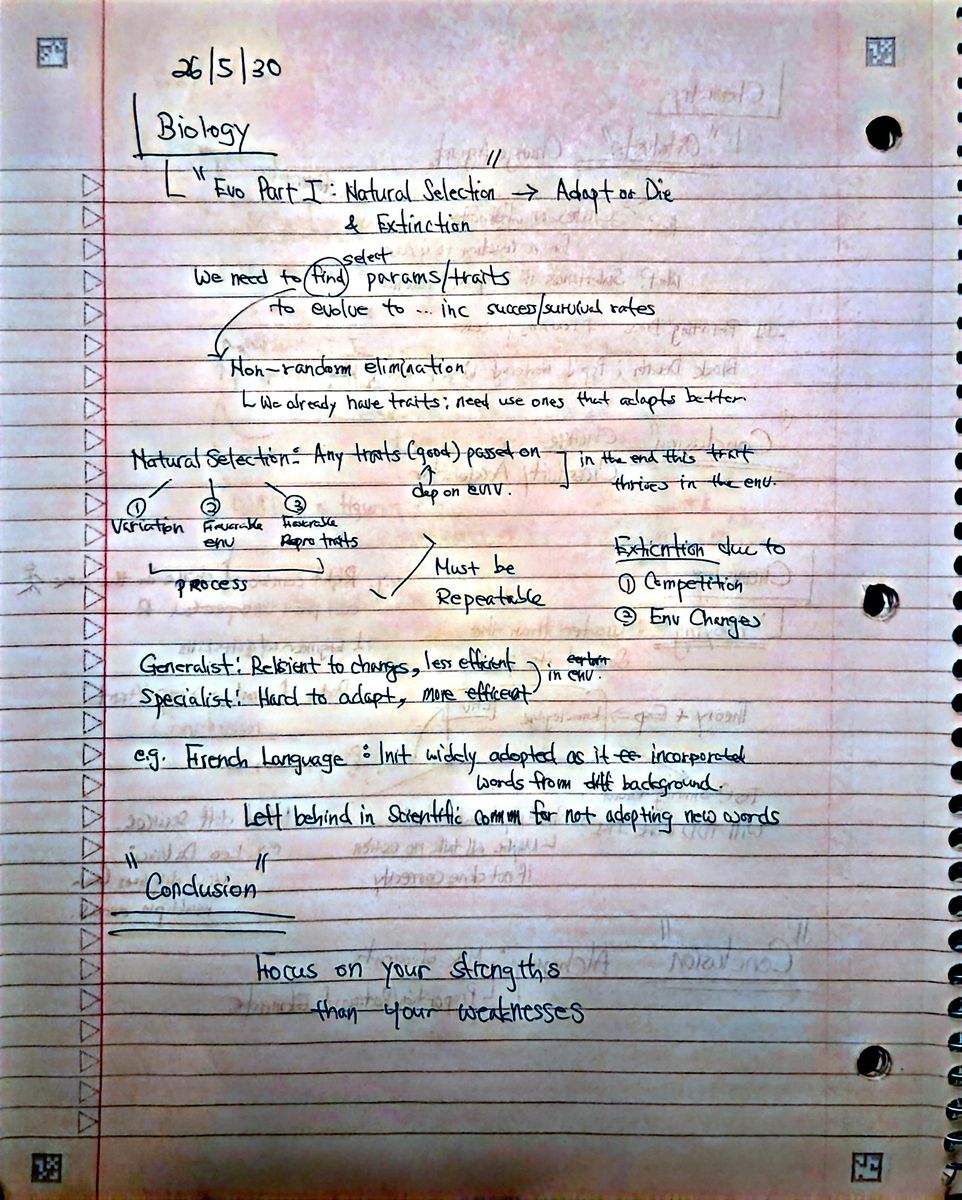 26/5/30
Biology
"Evo Part I: Natural Selection" → Adapt or Die
& Extinction
select
We need to find params/traits
to evolve to ... inc success/survival rates
Non-random elimination
We already have traits; need use ones that adapts better
Natural Selection: Any traits (good) passed on
dep on env.
in the end this trait
thrives in the env.
① ② ③
Variation Favorable Favorable
env Repro traits
process
Must be
Repeatable
Extication due to
① Competition
② Env Changes
Generalist: Relsient to changes, less efficient
Specialist: Hard to adapt, more efficent
certain
in env.
e.g. French Language : Init widely adopted as it incorporated
words from diff background.
Left behind in Scientific comm for not adopting new words
"Conclusion"
Focus on your strengths
than your weaknesses